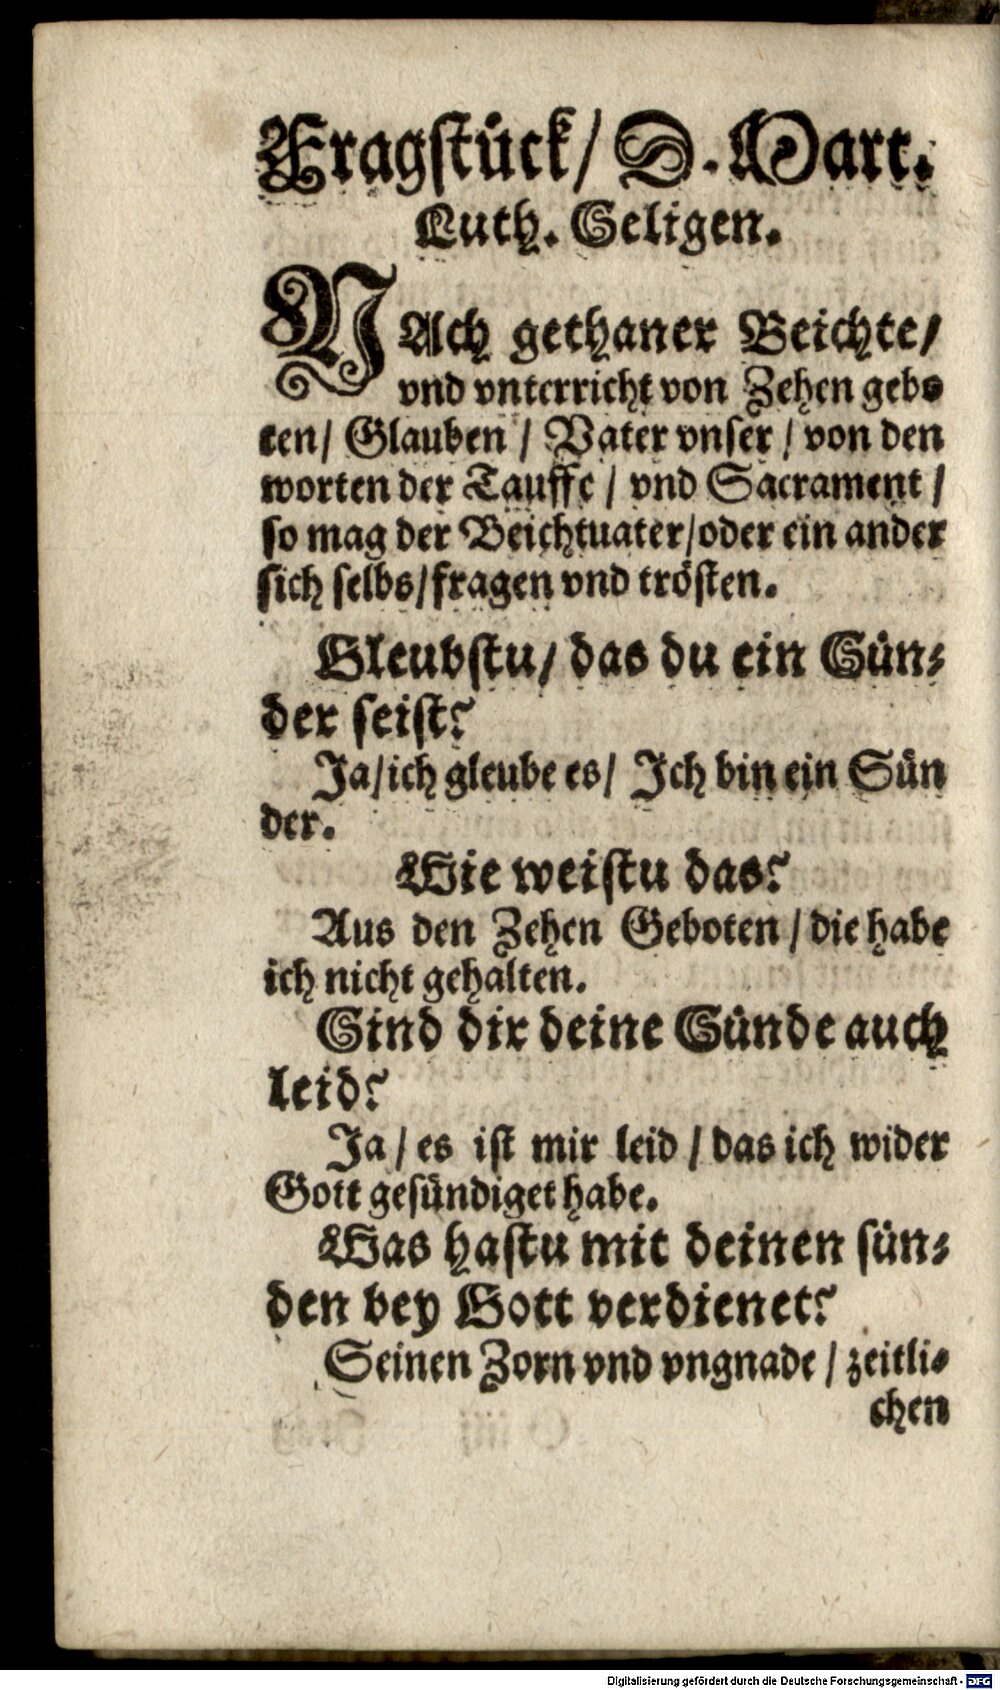 Fragstück/ D. Mart.
Luth. Seligen.
NAch gethaner Beichte/
vnd vnterricht von Zehen gebo
ten/ Glauben / Vater vnser / von den
worten der Tauffe / vnd Sacrament /
so mag der Beichtuater/oder ein ander
sich selbs/fragen vnd trösten.
Gleubstu/ das du ein Sün-
der seist?
Ja/ich gleube es/ Ich bin ein Sün
der.
Wie weistu das?
Aus den Zehen Geboten / die habe
ich nicht gehalten.
Sind dir deine Sünde auch
leid?
Ja / es ist mir leid / das ich wider
Gott gesündiget habe.
Was hastu mit deinen sün-
den bey Gott verdienet?
Seinen Zorn vnd vngnade / zeitli-
chen
Digitalisierung gefördert durch die Deutsche Forschungsgemeinschaft - DFG